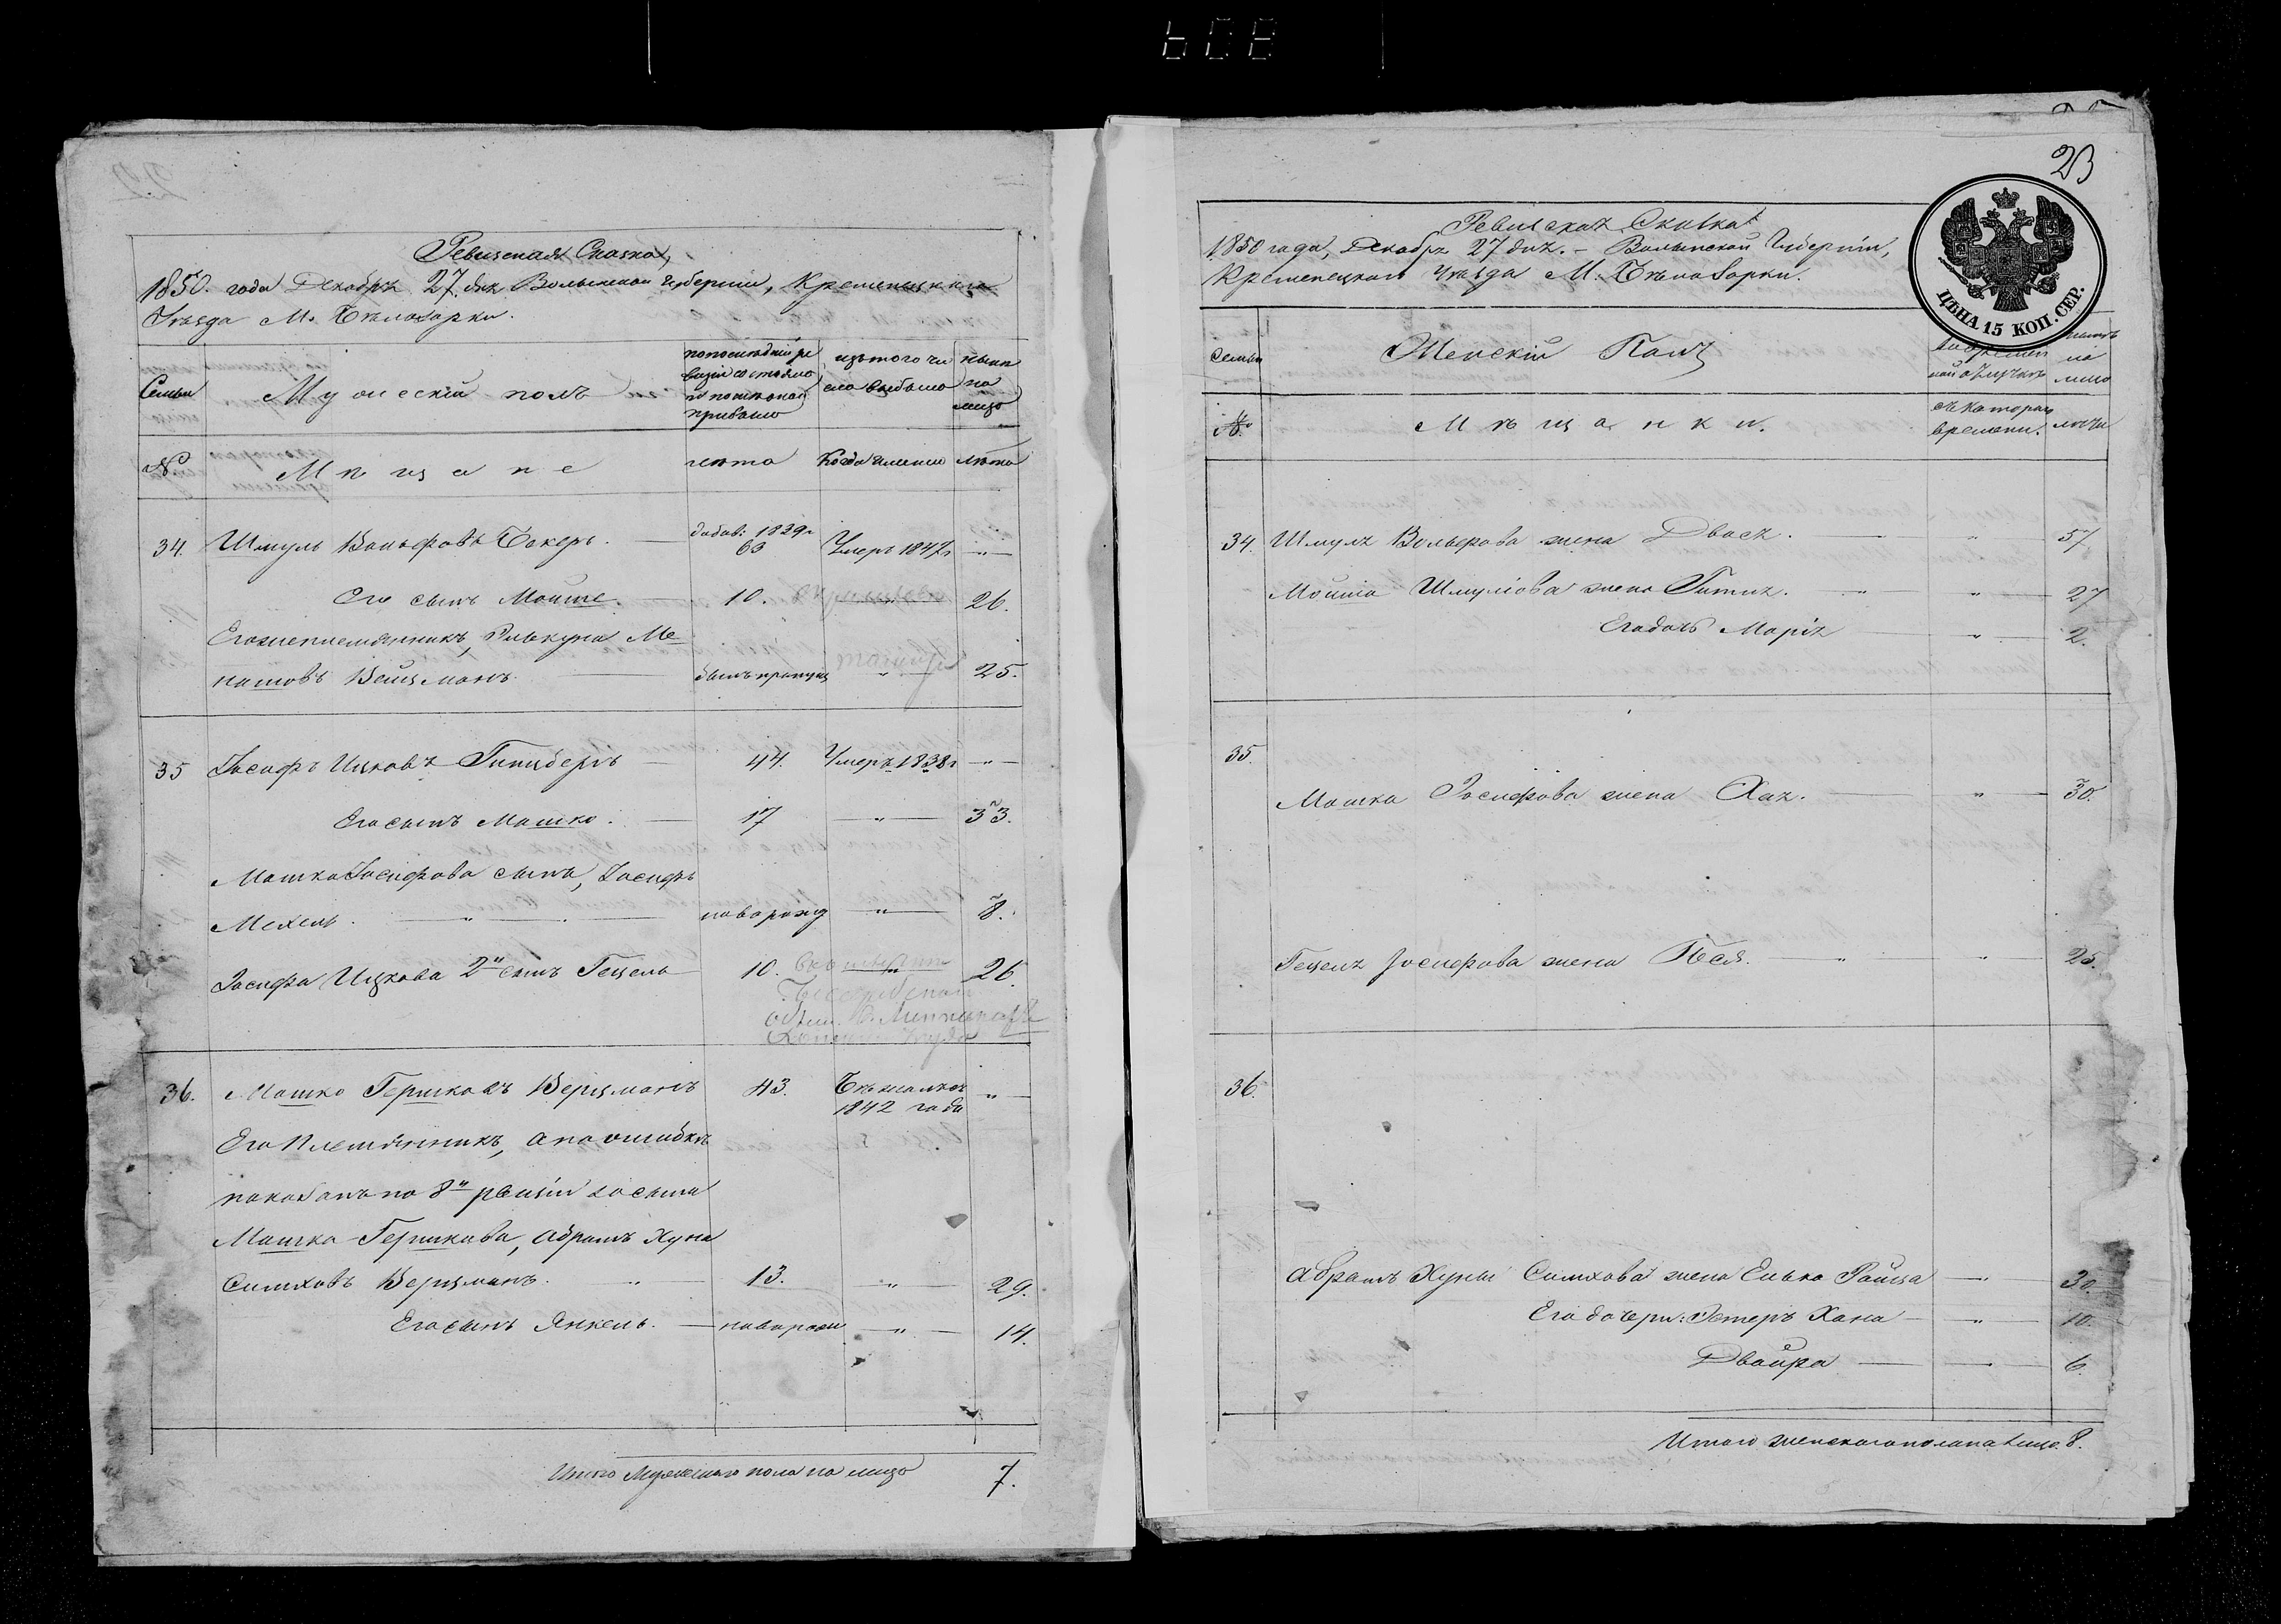 608
Ревизская Сказка,
1850. года Декабря 27. дня Волынской Губернии, Кременецкаго
Уезда М. Бѣлозорки.
Семьи
Мужескій полъ
по последней ре
визіи состояло
и после оной
прибыло
изъ того чи
сла выбыло
ныне
на
лицо
№
Мѣщане
лѣта
Когда именно
лѣта
34. Шмуль Вольфовъ Бокеръ. добав: 1839г 63 Умеръ 1847г "
Его сынъ Мошше. 10. " 26.
Его же племянникъ,
Вейцманъ. былъ пропущ " 25.
35 Іосифъ Ицковъ Гинцбергъ 44. Умеръ 1838г "
Его сынъ Мошко. 17 " 33.
Мошка Іосифова сынъ, Іосифъ
Мехель. " новорожд " 8.
Іосифа Ицкова 2й сынъ Гецель 10. " 26
36. Мошко Гершковъ Верцманъ 43. Бѣжалъ съ "
1842 года
Его Племянникъ, а по ошибкѣ
показанъ по 8й ревизіи за сына
Мошка Гершкова, Абрамъ Хуна
Симховъ Верцманъ. " 13. " 29.
Его сынъ Янкель. новорожд " 14.
Итого Мужескаго пола на лицо 7.
23
Ревизская Сказка
1850 года, Декабря 27 дня. Волынской Губерніи,
Кременецкаго Уѣзда М. Бѣлозорки.
ЦѢНА 15 КОП. СЕР.
Семьи
Женскій Полъ
Во временной отлучкѣ
на
лицо
№.
Мѣщанки.
съ котораго
времени.
лѣта
34. Шмуля Вольфова жена Двося. " 57
Мошша Шмулiова жена Гитля. " 27
Его дочь Марія " 2.
35.
Мошка Іосифова жена Хая. " 30.
Гецеля Іосифова жена Песя. " 25.
36.
Абрамъ Хуны Симхова жена Елька Райца " 30.
Его дочери: Эстеръ Хана " 10.
Двойра " 6.
Итого женскаго пола на лицо. 8.